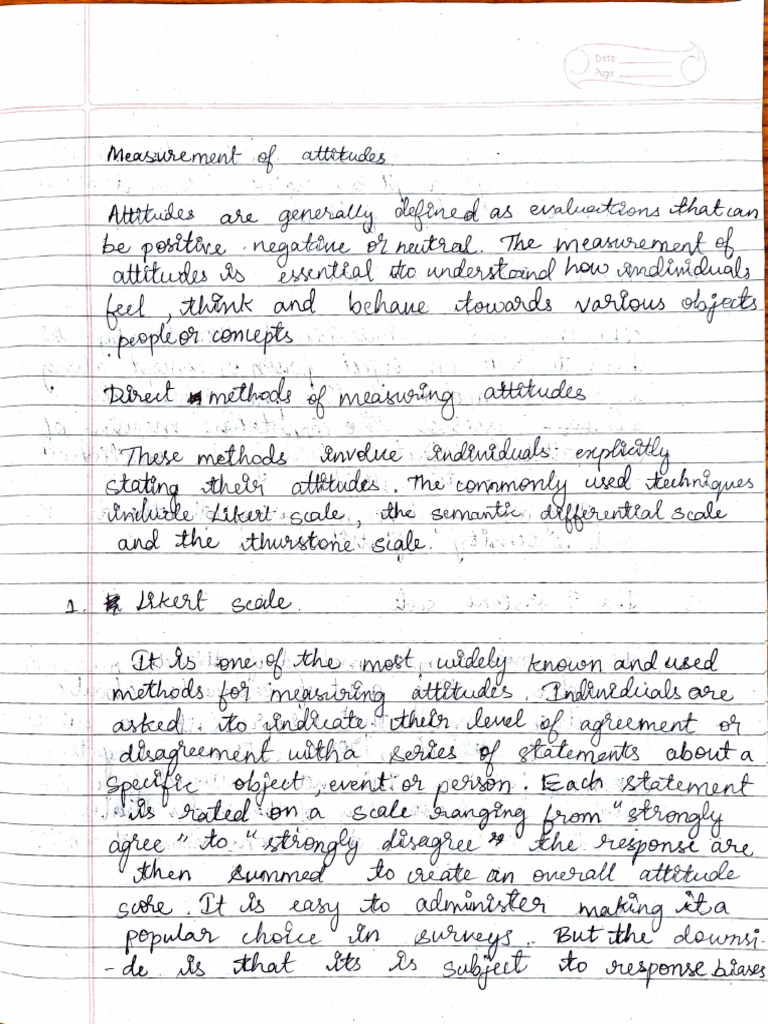 Date
Page
Measurement of attitudes
Attitudes are generally defined as evaluations that can
be positive negative or neutral. The measurement of
attitudes is essential to understand how individuals
feel, think and behave towards various objects
people or concepts
Direct methods of measuring attitudes
These methods involve individuals explicitly
stating their attitudes. The commonly used techniques
include Likert scale, the semantic differential scale
and the thurstone scale.
1. Likert scale.
It is one of the most widely known and used
methods for measuring attitudes. Individuals are
asked to indicate their level of agreement or
disagreement with a series of statements about a
specific object, event or person. Each statement
is rated on a scale ranging from "strongly
agree" to "strongly disagree" the response are
then summed to create an overall attitude
score. It is easy to administer making it a
popular choice in surveys. But the downsi-
-de is that its is subject to response biases